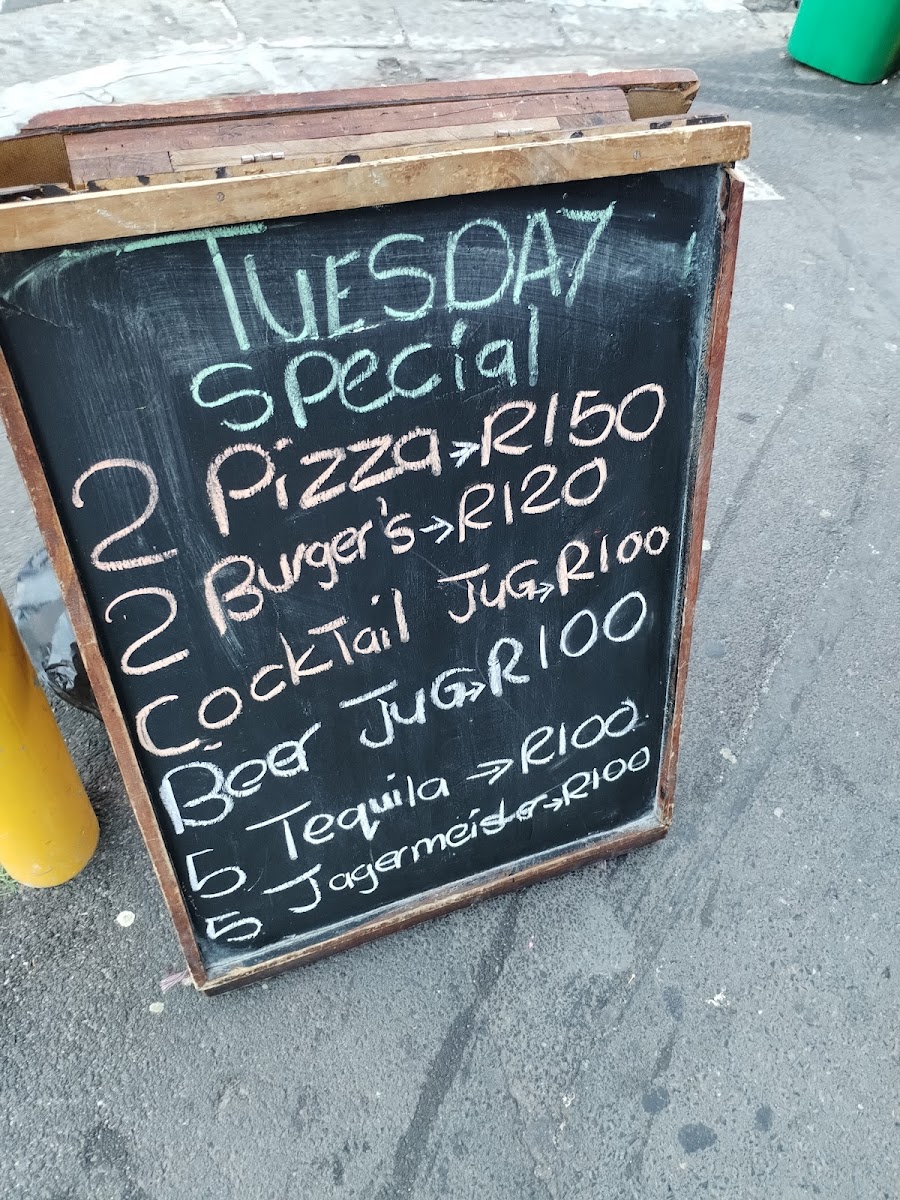 TUESDAY
special
2 Pizza → R150
2 Burger's → R120
Cocktail Jug → R100
Beer Jug → R100
5 Tequila → R100
5 Jagermeister → R100